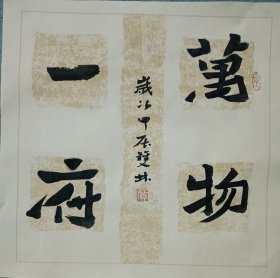 萬物
一府
歲次甲辰雙林